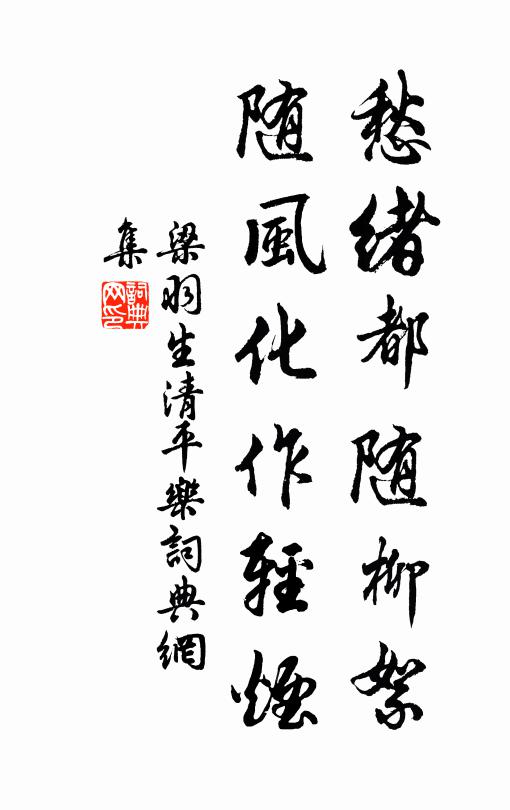 愁緒都随柳絮
随風化作輕煙
梁羽生清平樂詞典網
集
詞典
网印